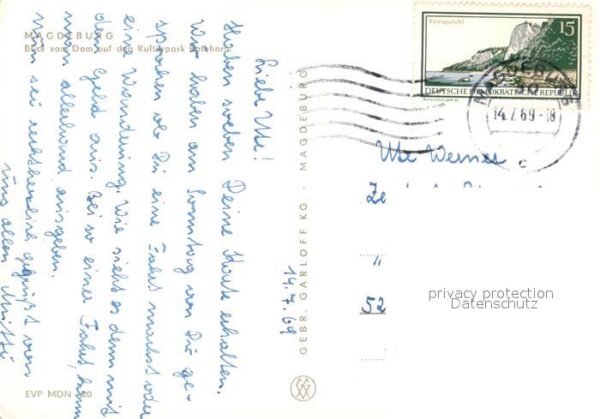 MAGDEBURG
Blick vom Dom auf den Kulturpark Rotehorn
Liebe Ute!
Haben soeben Deine Karte erhalten.
Wir haben am Sonntag von Dir ge-
sprochen ob Du eine Fahrt machst oder
eine Wanderung. Wie sieht es denn mit
dem Geld aus. Bei so einer Fahrt, kann
man allerhand ausgeben.
Nun sei recht herzlich gegrüßt von
uns allen Mutti
EVP MDN
GEBR. GARLOFF KG · MAGDEBURG
14.7.69
Königsstuhl
15
DEUTSCHE DEMOKRATISCHE REPUBLIK
MAGDEBURG
14.7.69-18
c
Ute Werner
"
52
privacy protection
Datenschutz